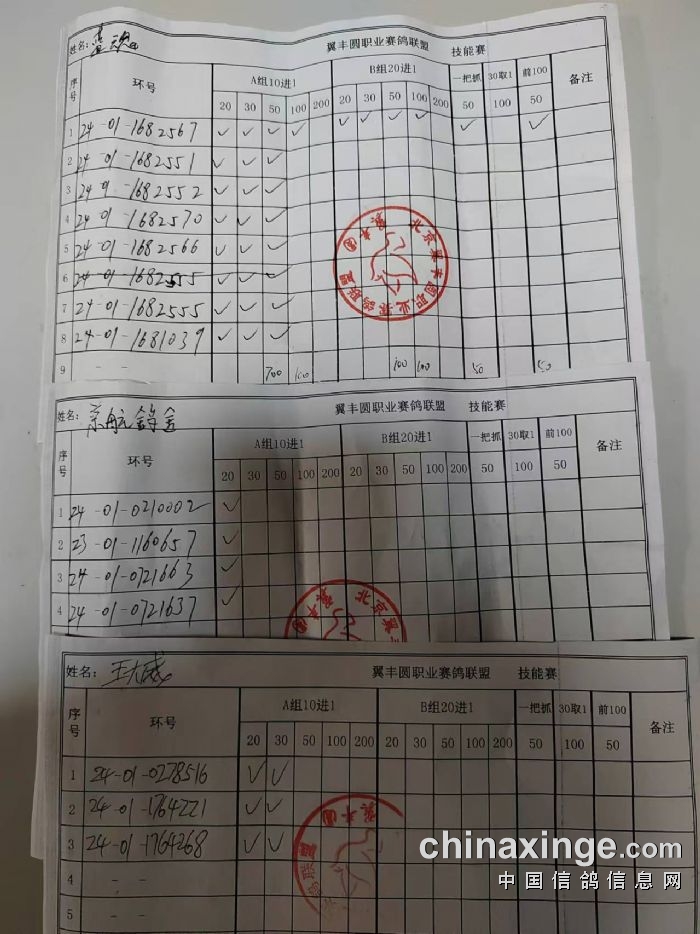 姓名: 翼丰圆职业赛鸽联盟 技能赛
序号 环号 A组10进1 B组20进1 一把抓 30取1 前100 备注
20 30 50 100 200 20 30 50 100 200 50 100 50
1 24-01-1682567 ✓ ✓ ✓ ✓ ✓ ✓ ✓ ✓ ✓ ✓
2 24-01-1682551 ✓ ✓ ✓
3 24-01-1682552 ✓ ✓ ✓
4 24-01-1682570 ✓ ✓ ✓
5 24-01-1682566 ✓ ✓ ✓
6 24-01-1682555 ✓ ✓ ✓
7 24-01-1682555 ✓ ✓ ✓
8 24-01-1681039 ✓ ✓ ✓
9 - - 700 100 100 100 50 50
北京翼丰圆职业赛鸽联盟
姓名: 京航鸽舍 翼丰圆职业赛鸽联盟 技能赛
序号 环号 A组10进1 B组20进1 一把抓 30取1 前100 备注
20 30 50 100 200 20 30 50 100 200 50 100 50
1 24-01-0210002 ✓
2 23-01-1160657 ✓
3 24-01-0721663 ✓
4 24-01-0721637 ✓
姓名: 王大成 翼丰圆职业赛鸽联盟 技能赛
序号 环号 A组10进1 B组20进1 一把抓 30取1 前100 备注
20 30 50 100 200 20 30 50 100 200 50 100 50
1 24-01-0278516 ✓ ✓
2 24-01-1764221 ✓ ✓
3 24-01-1764268 ✓ ✓
4 - -
5 - -
chinaxinge.com
中国信鸽信息网